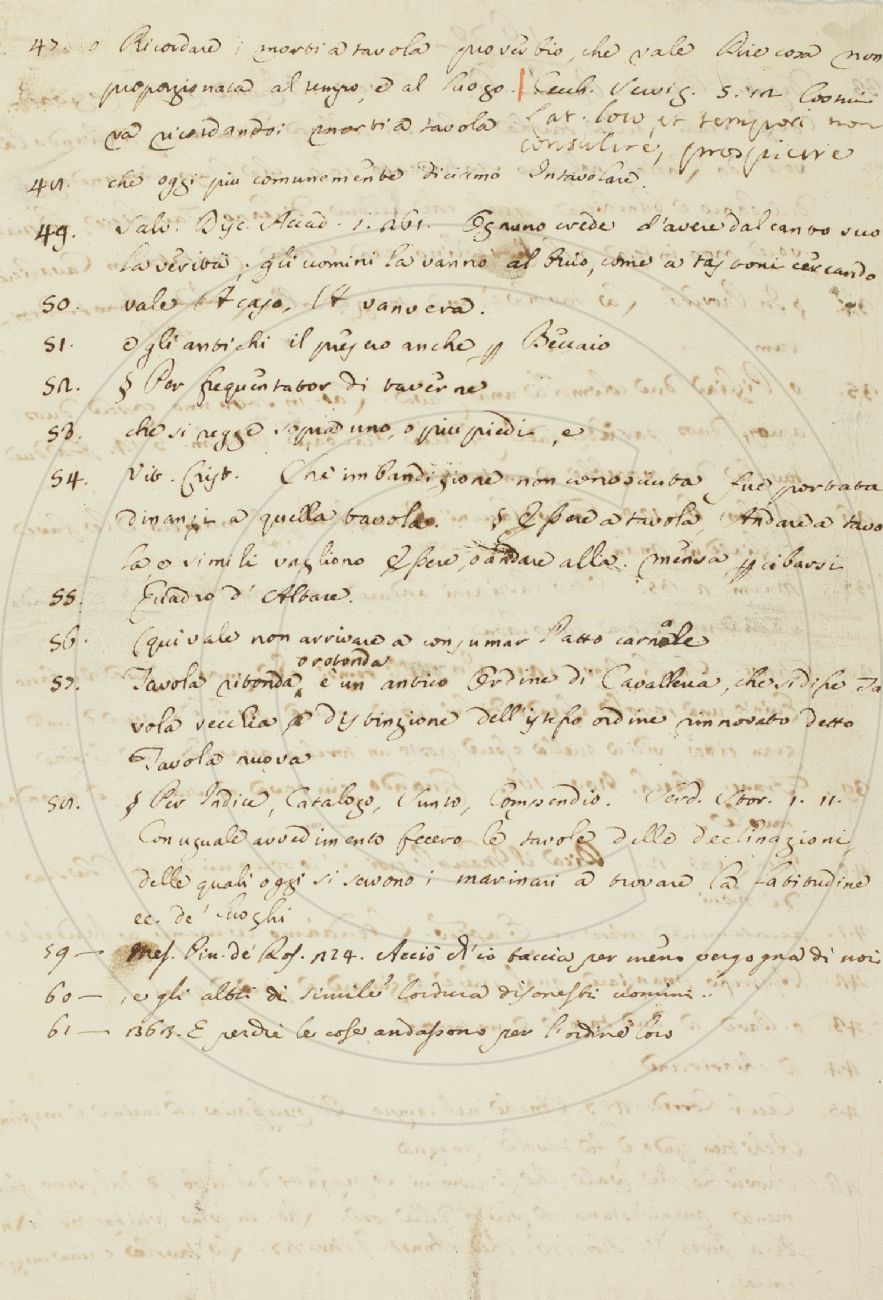 47. o Ricordare i morti a tavola proverbio, che vale Dire cosa non
proporzionata al tempo, e al luogo. | Cecch. Servig. 5. 12 Costui
va ricordando i morti a tavola Lat. loco, et tempori non
consulere, prospicere
48. che oggi più comunemente diciamo Intavolare.
49. Salv. Disc. Accad. 1. 261. Ognuno crede d'avere dal canto suo
la verità, gli uomini la vanno al buio, come a tastoni cercando
50. vale A caso, A vanvera.
51. e gli antichi il presero anche p Beccaio
52. § Per frequentator di taverne
53. che si regge sopra uno, o più piedi, e
54. Vit. Crist. Che imbandigione non conosciuta fue portata
dinanzi a quella tavola. § Essere a tavola Andare a tavo
la e simili vagliono Essere, o andare alla mensa p cibarsi
55. Quadro d'Altare.
56. (qui vale non arrivare a consumar l'atto carnale
57. Tavola ritonda o rotonda è un antico Ordine di Cavalleria, che si disse Ta
vola vecchia p distinzione dell'istesso ordine rinnovato detto
Tavola nuova
58. § Per Indice, Catalogo, Sunto, Compendio. Serd. Stor. 1. 11.
Con uguale avvedimento fecero le tavole delle declinazioni,
delle quali oggi si servono i marinari a trovare la latitudine
ec. de' luoghi
59 — Mes. Bin. de' Ros. 124. Acciò ch'io taccia per meno vergogna di noi
60 — , e gli altri di simile lordura disonesti uomini.
61 — 1363. E perchè le cose andassono per l'ordine loro